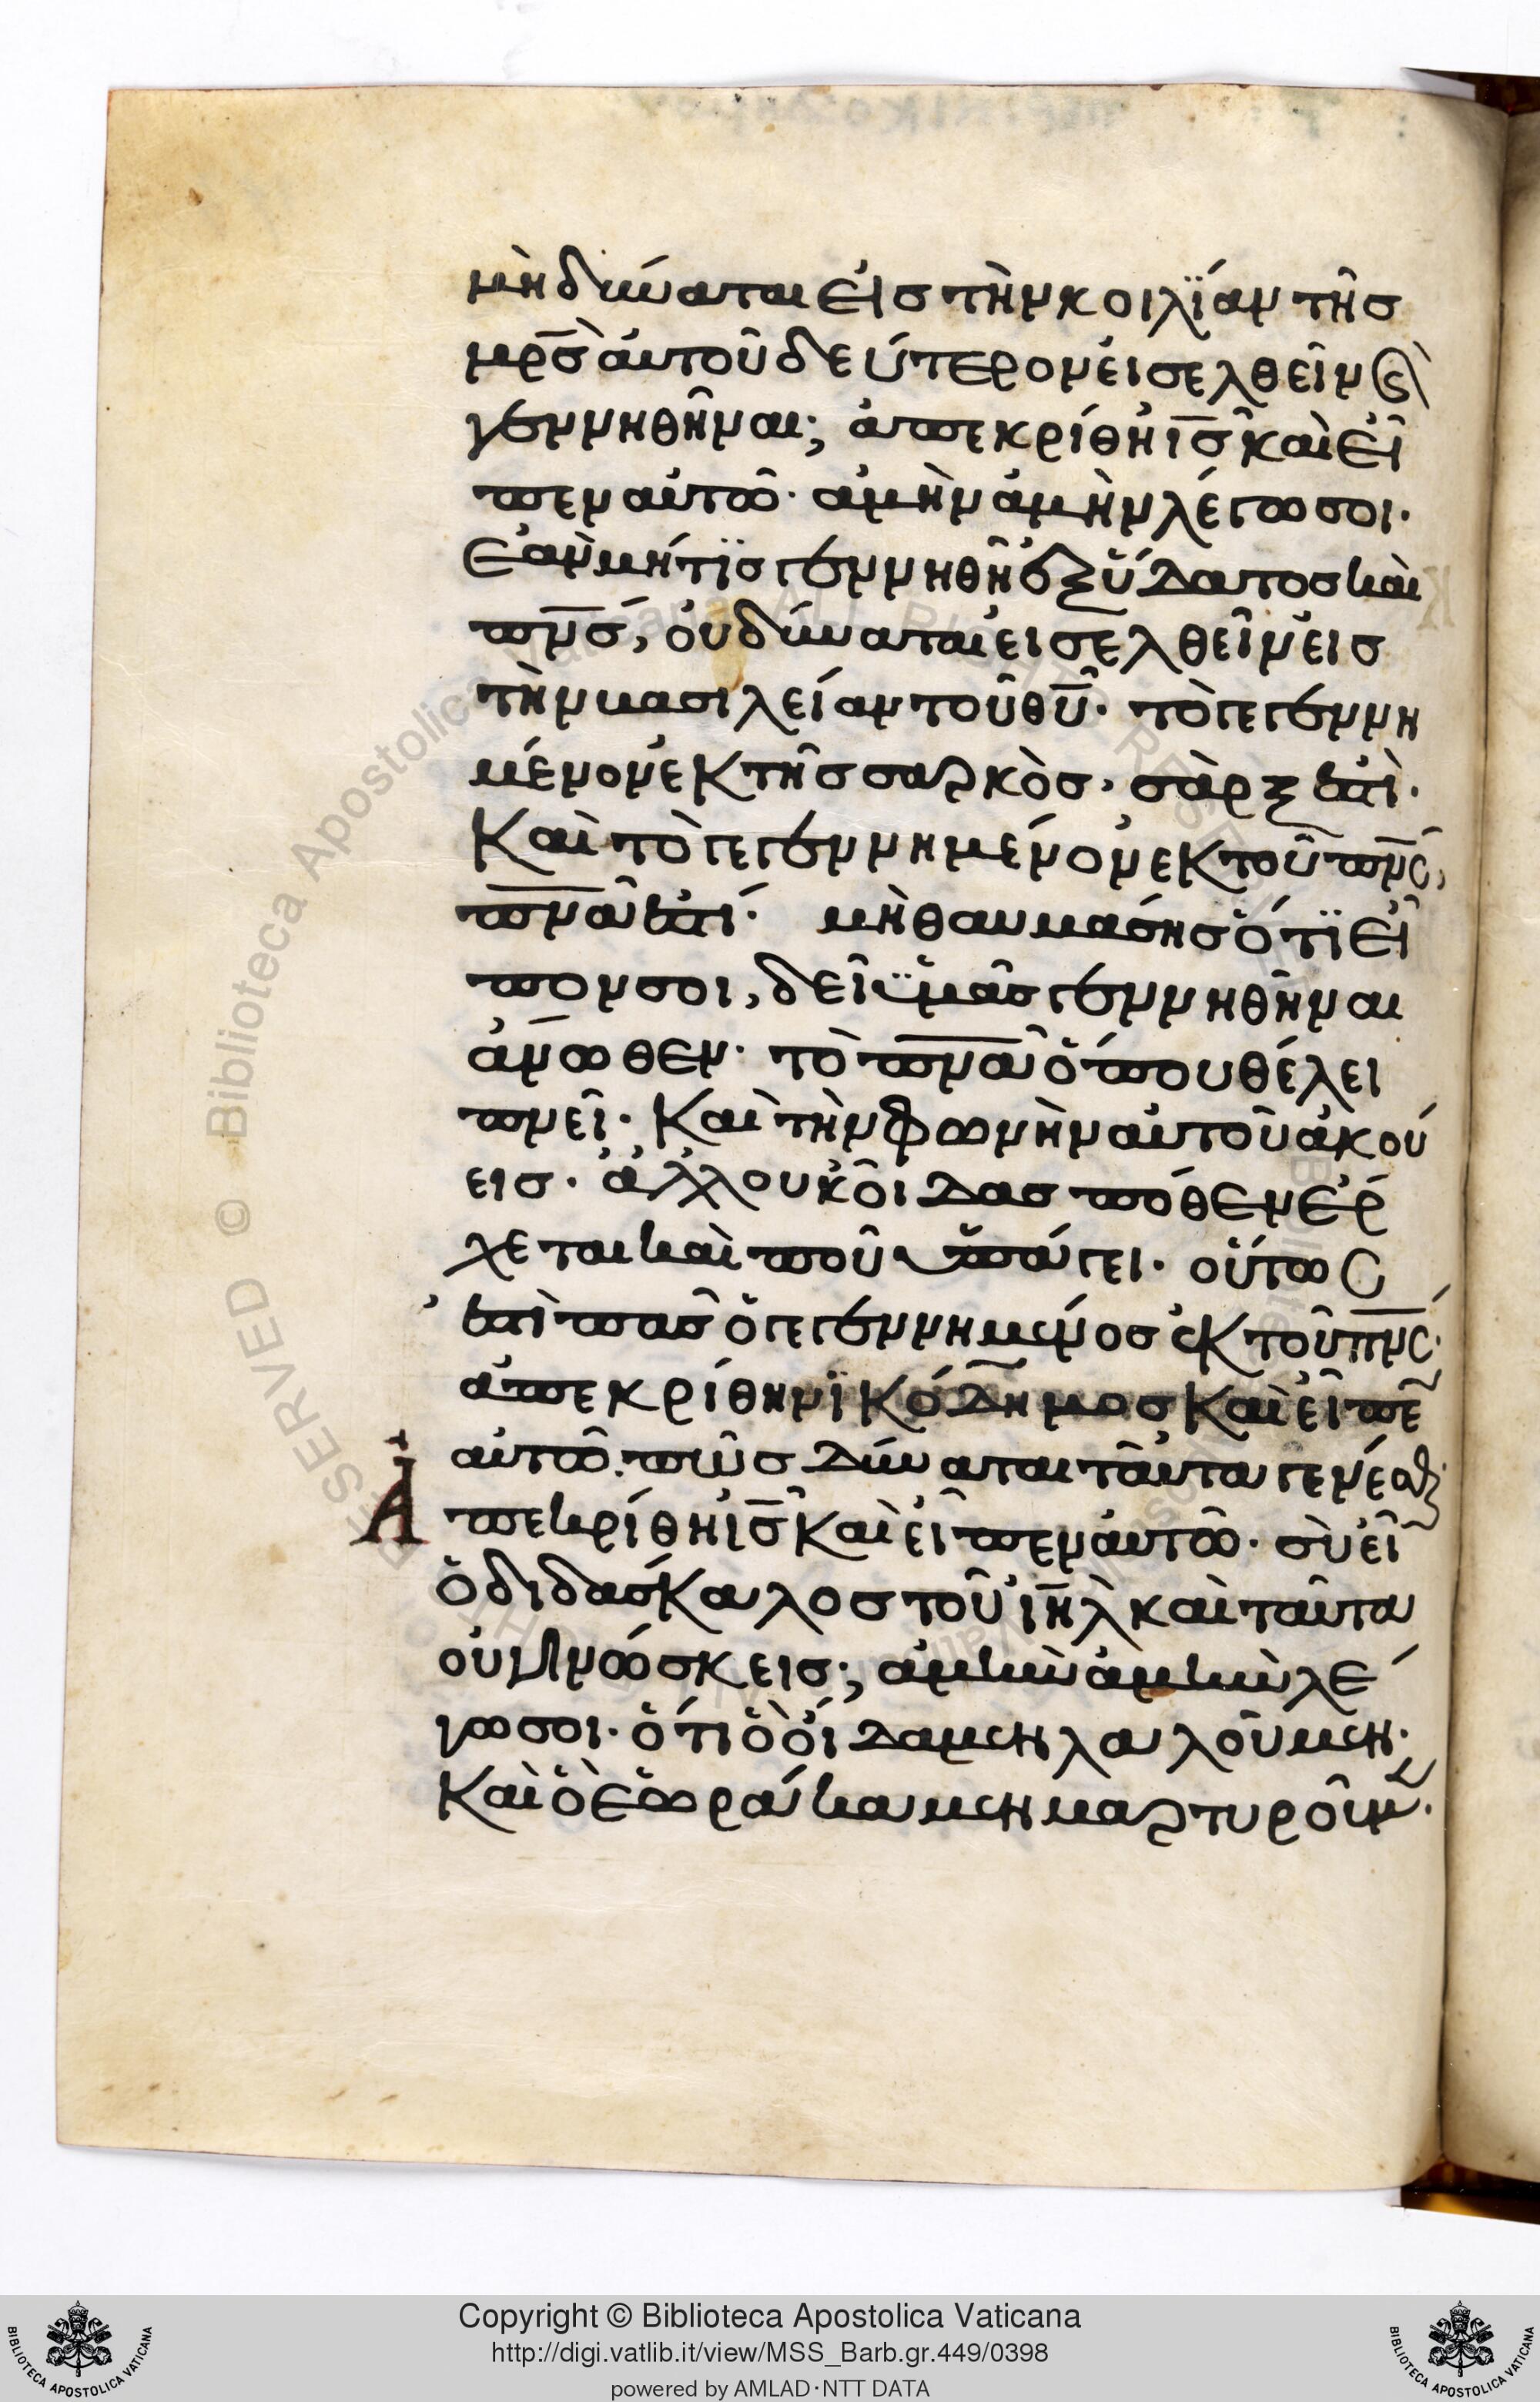 μὴ δύναται εἰς τὴν κοιλΐαν τῆς
μρ̅ς̀ αὐτοῦ δεύτερον εἰσελθεῖν (κ)
γεννηθῆναι; ἀπεκρίθη ἰ̅ς̅ καὶ εἶ
πεν αὐτῶ· ἀμὴν ἀμὴν λέγω σοι·
ἐὰν μή τϊς γεννηθῆ ἐξ ὕδατος καὶ
πν̅ς́, οὐ δύναται εἰσελθεῖν εἰς
τὴν βασιλείαν τοῦ θ̅υ̅· τὸ γεγεννη
μένον ἐκ τῆς σαρκὸς, σὰρξ ἐστὶ·
Καὶ τὸ γεγεννημένον ἐκ τοῦ πν̅ς̅,
πν̅α̅ ἐστί· μὴ θαυμάσης ὅτϊ εἶ
πον σοι, δεῖ ϋμᾶς γεννηθῆναι
ἄνωθεν· τὸ πν̅α̅ ὅπου θέλει
πνεῖ· Καὶ τὴν φωνὴν αὐτοῦ ἀκού
εις· ἀλλ' οὐκ οἶδας πόθεν ἔρ
χεται καὶ ποῦ ὑπάγει· οὕτως
ἐστὶ πᾶς ὁ γεγεννημένος ἐκ τοῦ πν̅ς̅·
ἀπεκρίθη νϊκόδημος καὶ εἶπε̅
αὐτῶ· πῶς δύναται ταῦτα γενέσθαι·
Ἀπεκρίθη ἰ̅ς̅ καὶ εἶπεν αὐτῶ· σὺ εἶ
ὁ διδάσκαλος τοῦ ἰη̅λ̀ καὶ ταῦτα
οὐ γινώσκεις; ἀμὴν ἀμὴν λέ
γω σοι· ὅτι ὃ οἴδαμεν λαλοῦμεν·
Καὶ ὃ ἑωράκαμεν μαρτυροῦμεν·
Copyright © Biblioteca Apostolica Vaticana
http://digi.vatlib.it/view/MSS_Barb.gr.449/0398
powered by AMLAD·NTT DATA